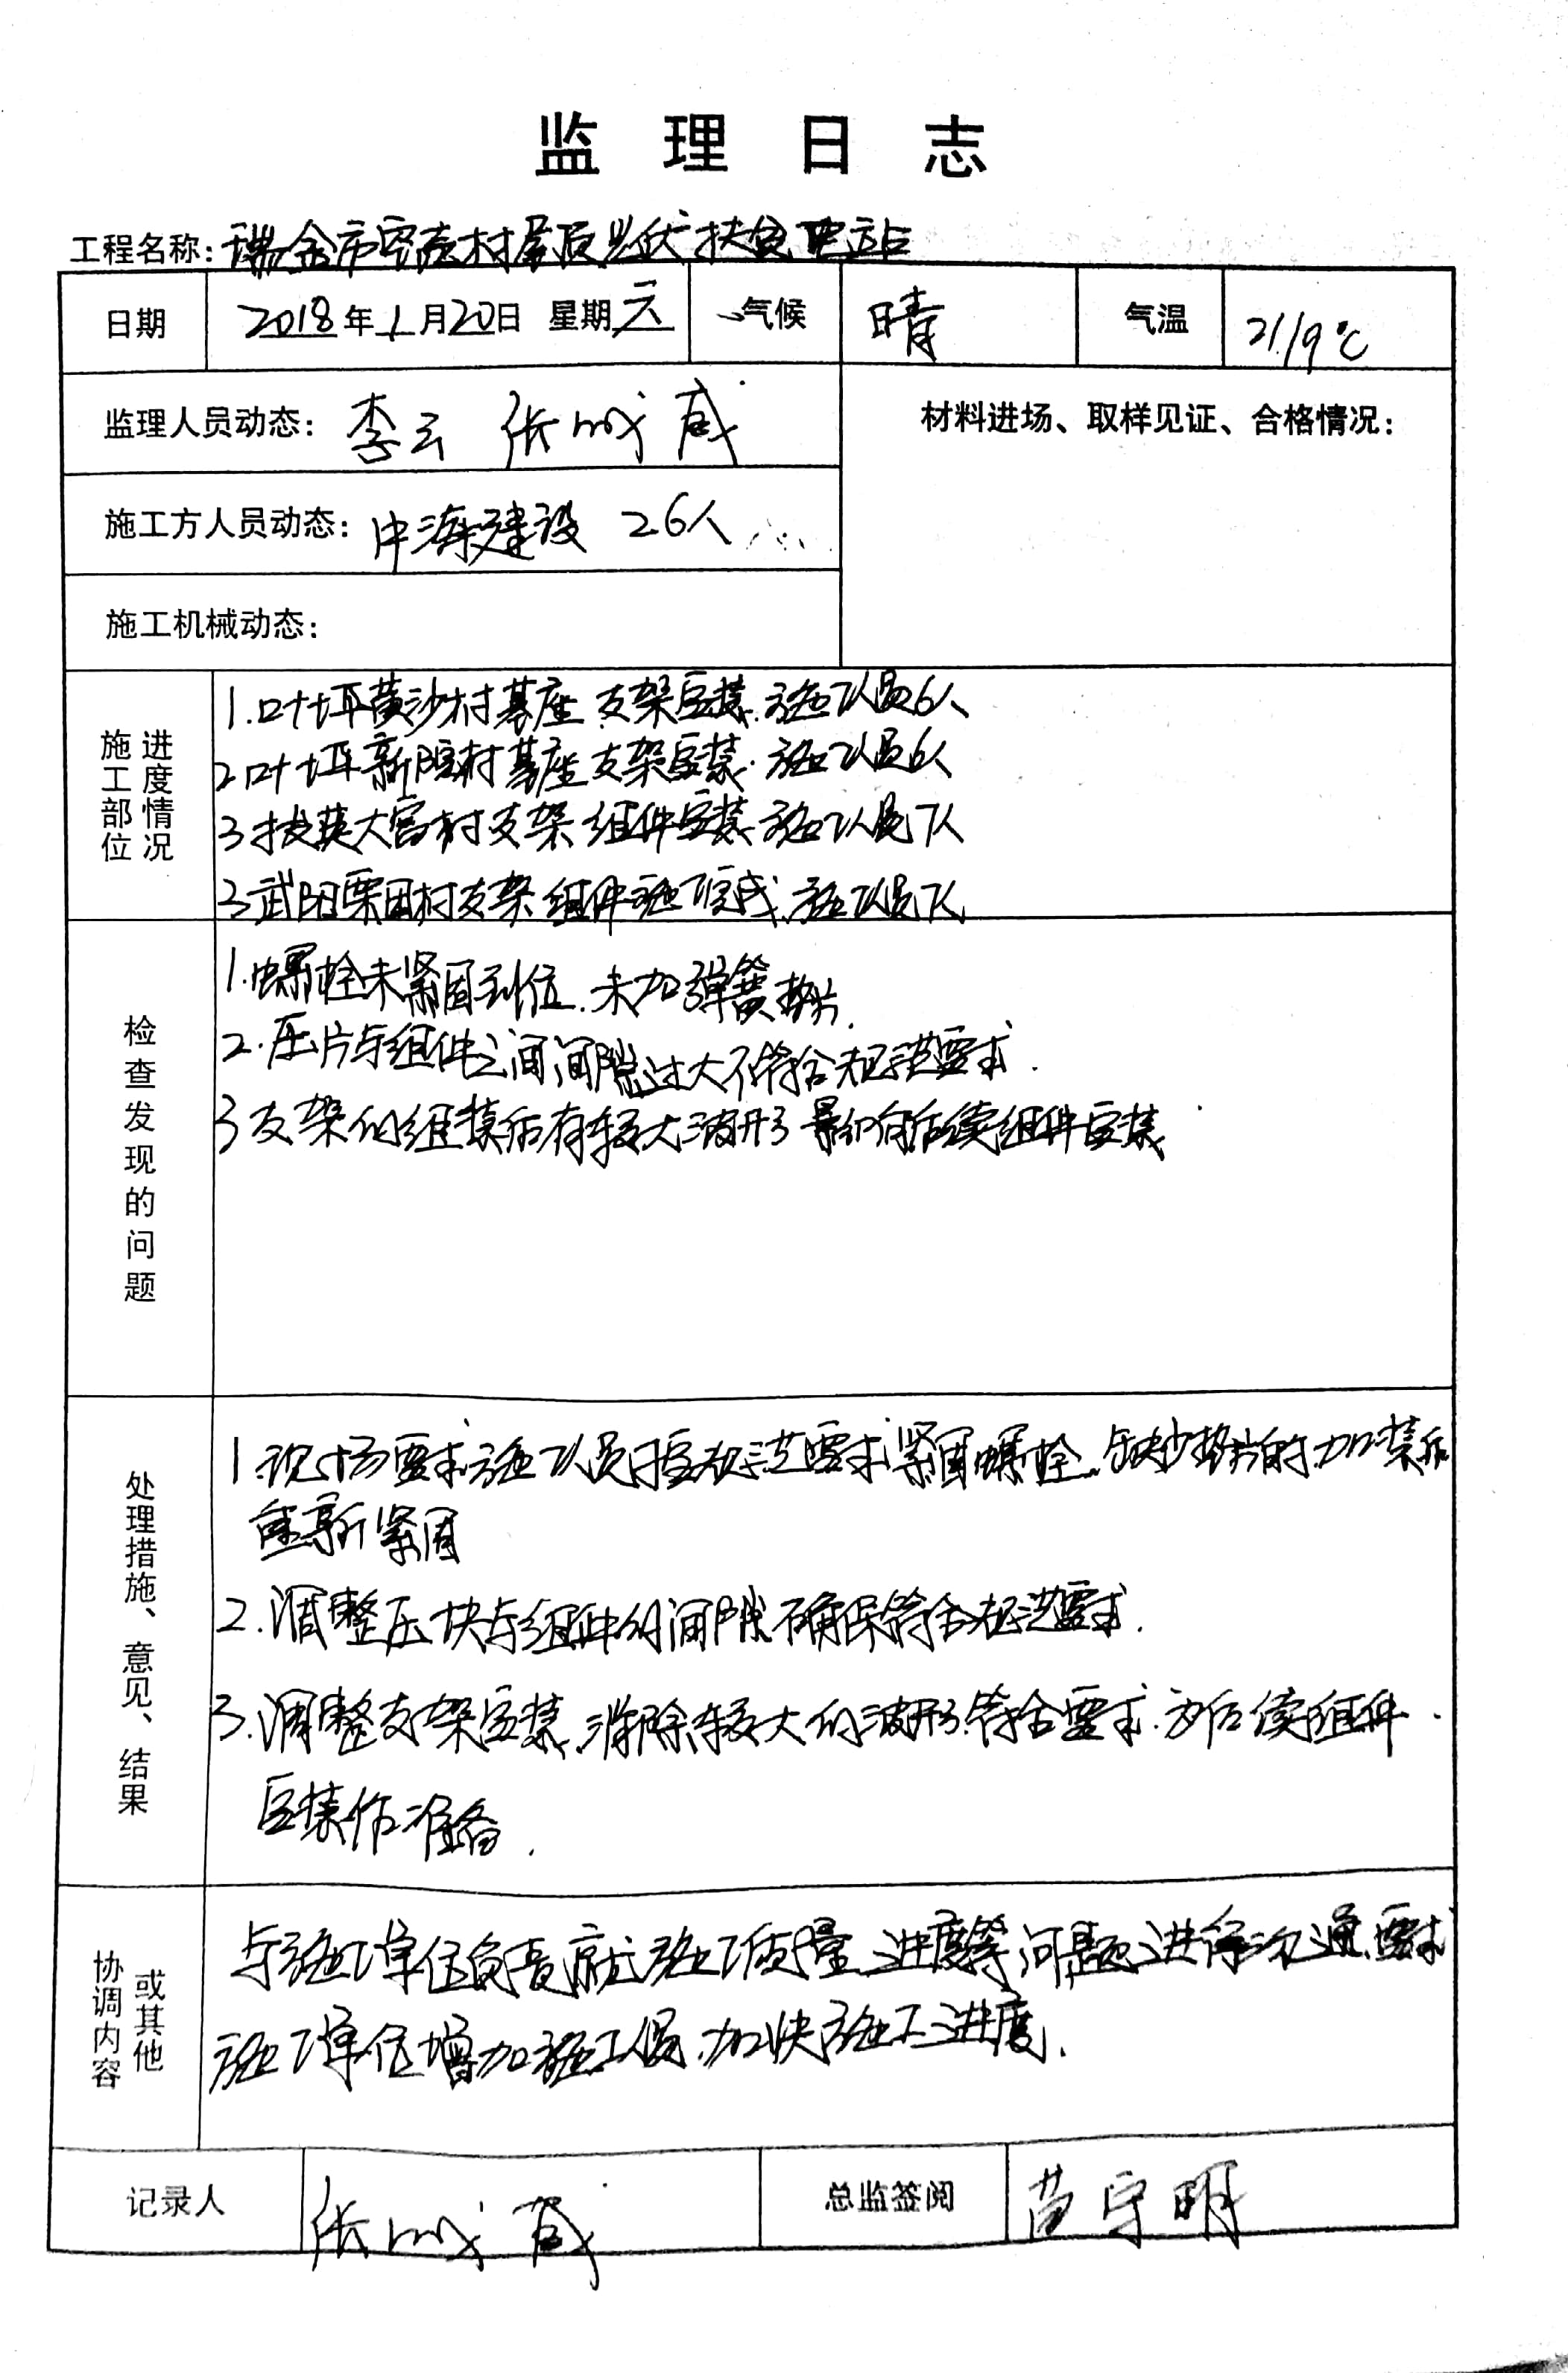 监理日志
工程名称：瑞金市贫困村屋顶光伏扶贫电站
日期 2018年1月20日 星期六 气候 晴 气温 21/9℃
监理人员动态：李云 张 材料进场、取样见证、合格情况：
施工方人员动态：中海建设 26人
施工机械动态：
施工部位 进度情况
1.叶坪黄沙村基座支架安装.施工人员6人
2叶坪新院村基座支架安装.施工人员6人
3拔英大富村支架组件安装.施工人员7人
3武阳粟田村支架组件施工完成.施工人员7人
检查发现的问题
1.螺栓未紧固到位.未加弹簧垫片.
2.压片与组件之间间隙过大不符合规范要求.
3支架的组装后有较大波形影响后续组件安装.
处理措施、意见、结果
1.现场要求施工人员按规范要求紧固螺栓.缺少垫片的加装后
重新紧固
2.调整压块与组件的间隙确保符合规范要求.
3.调整支架安装.消除较大的波形符合要求.为后续组件
安装作准备.
协调内容 或其他
与施工单位负责就施工质量.进度等问题进行沟通.要求
施工单位增加施工人员.加快施工进度.
记录人 张 总监签阅 黄守明